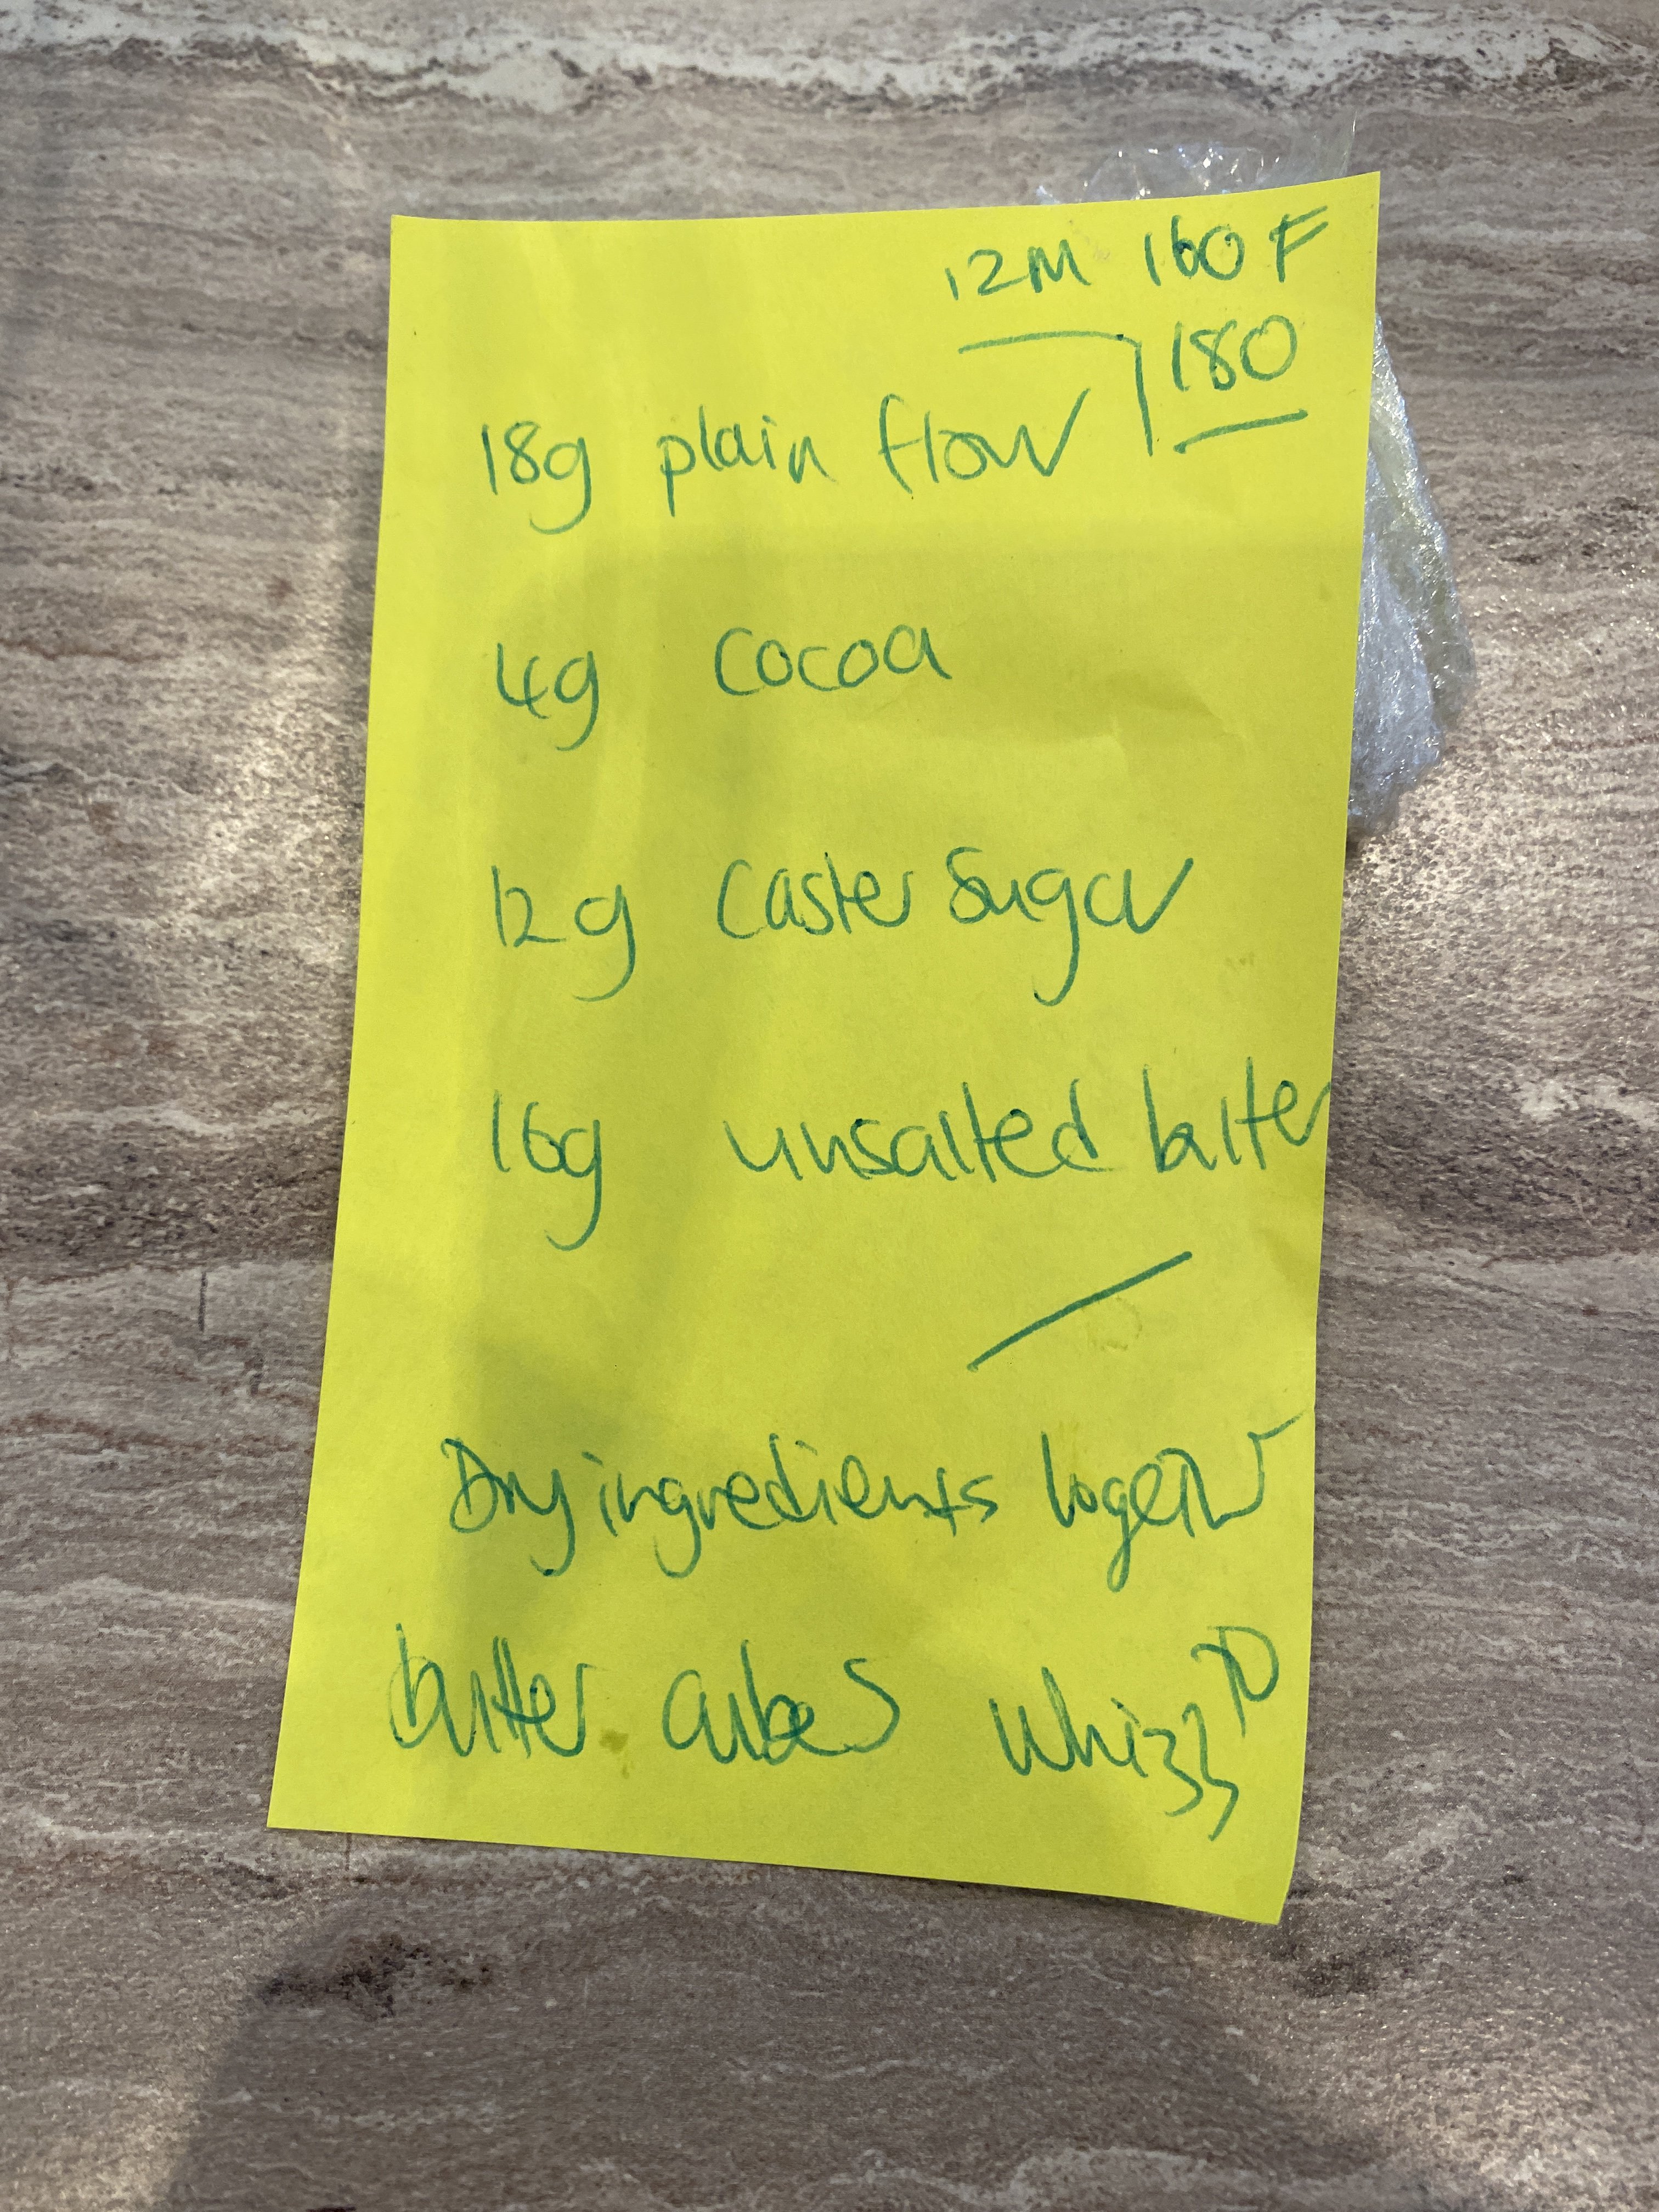 12M 160 F
180
18g plain flour
4g cocoa
12g caster sugar
16g unsalted butter
Dry ingredients together
butter cubes whizz